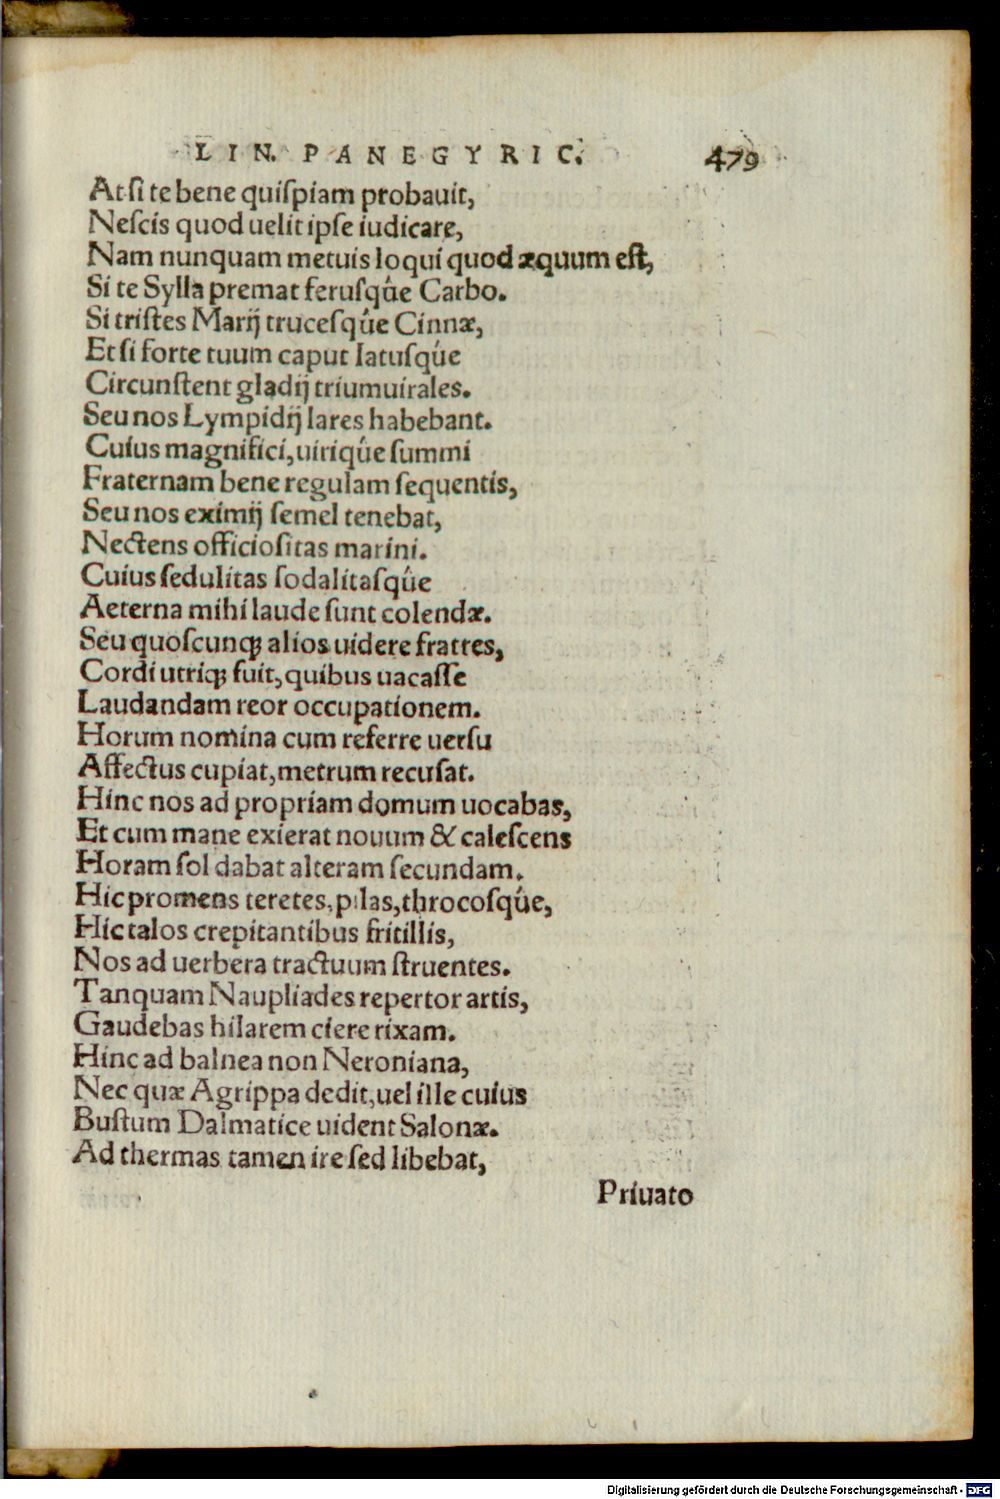 LIN. PANEGYRIC. 479
At si te bene quiſpiam probauit,
Neſcis quod uelit ipſe iudicare,
Nam nunquam metuis loqui quod æquum eſt,
Si te Sylla premat feruſqûe Carbo.
Si triſtes Marij truceſqûe Cinnæ,
Et ſi forte tuum caput latuſqúe
Circunſtent gladij triumuirales.
Seu nos Lympidij lares habebant.
Cuius magnifici, uiriqûe ſummi
Fraternam bene regulam ſequentis,
Seu nos eximij ſemel tenebat,
Nectens officioſitas marini.
Cuius ſedulitas ſodalitaſqûe
Aeterna mihi laude ſunt colendæ.
Seu quoſcunqꝫ alios uidere fratres,
Cordi utriqꝫ fuit, quibus uacaſſe
Laudandam reor occupationem.
Horum nomina cum referre uerſu
Affectus cupiat, metrum recuſat.
Hinc nos ad propriam domum uocabas,
Et cum mane exierat nouum & caleſcens
Horam ſol dabat alteram ſecundam.
Hic promens teretes, pilas, throcoſqúe,
Hic talos crepitantibus fritillis,
Nos ad uerbera tractuum ſtruentes.
Tanquam Naupliades repertor artis,
Gaudebas hilarem ciere rixam.
Hinc ad balnea non Neroniana,
Nec quæ Agrippa dedit, uel ille cuius
Buſtum Dalmatice uident Salonæ.
Ad thermas tamen ire ſed libebat,
Priuato
Digitalisierung gefördert durch die Deutsche Forschungsgemeinschaft - DFG